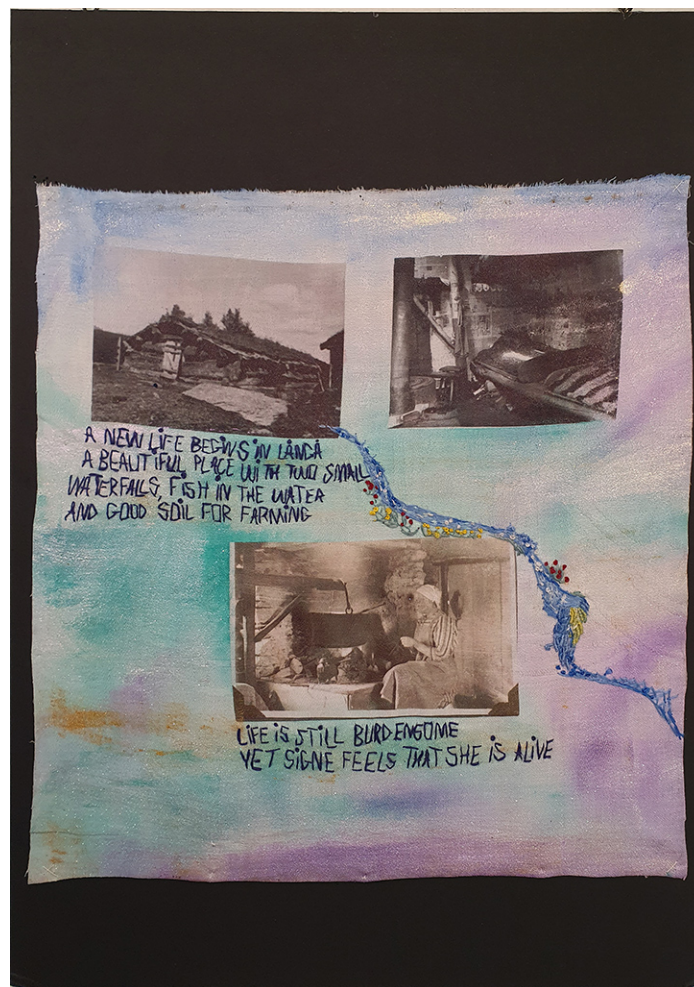 A NEW LIFE BEGINS IN LÅNDÅ
A BEAUTIFUL PLACE WITH TWO SMALL
WATERFALLS, FISH IN THE WATER
AND GOOD SOIL FOR FARMING
LIFE IS STILL BURDENSOME
YET SIGNE FEELS THAT SHE IS ALIVE